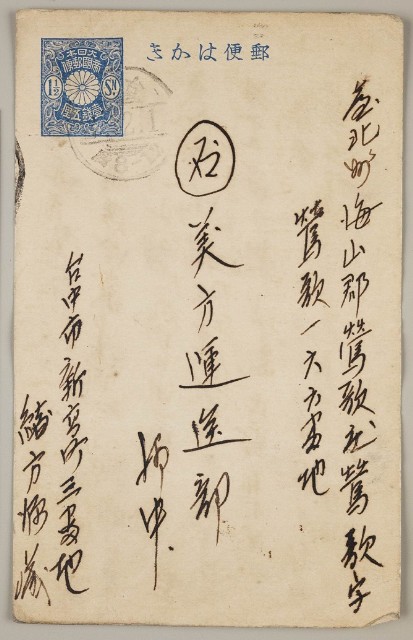 郵便はかき
大日本
帝國郵便
壹錢五厘
1½ Sn.
臺北州海山郡鶯歌庄鶯歌字
鶯歌一六六番地
美方運送部
御中
台中市新富町三番地
方